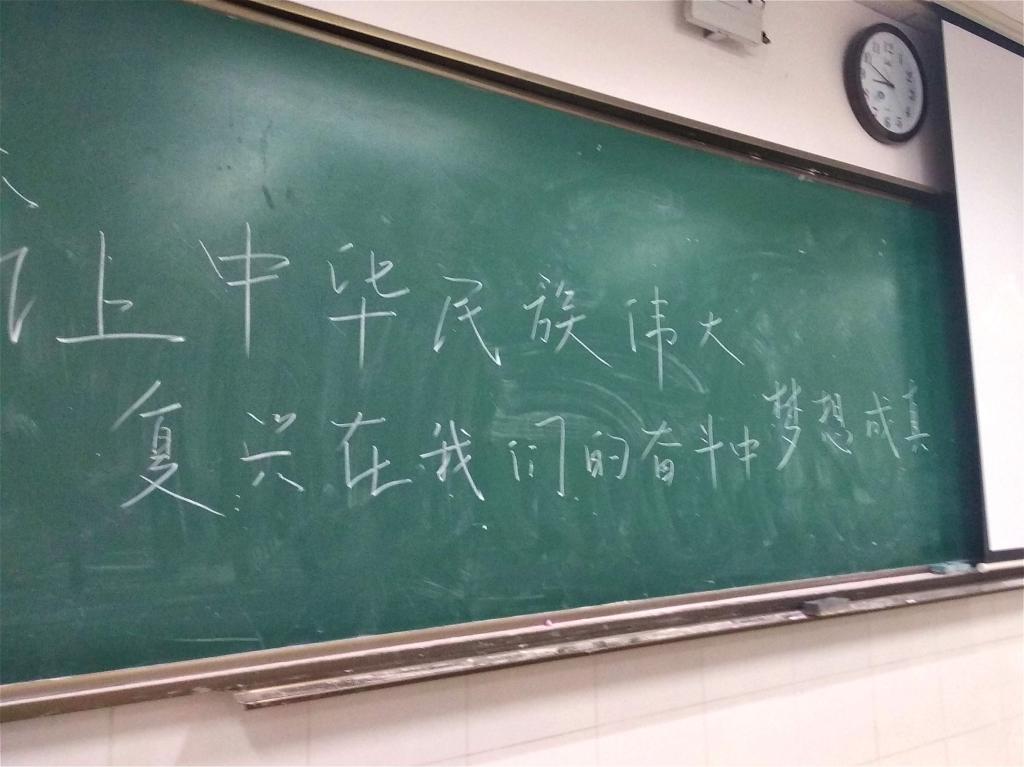 让中华民族伟大
复兴在我们的奋斗中梦想成真